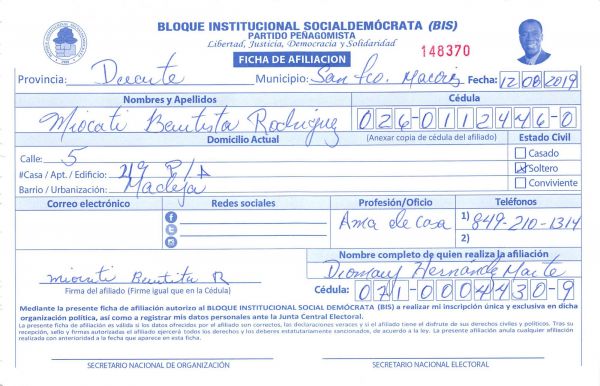 BLOQUE INSTITUCIONAL SOCIALDEMÓCRATA (BIS)
PARTIDO PEÑAGOMISTA
Libertad, Justicia, Democracia y Solidaridad
FICHA DE AFILIACION
148370
Provincia: Duarte Municipio: San Fco. Macorís Fecha: 12/08/2019
Nombres y Apellidos Cédula
Miocati Bautista Rodriguez 026-0112446-0
Domicilio Actual (Anexar copia de cédula del afiliado) Estado Civil
Calle: 5 Casado
#Casa / Apt. / Edificio: 49 P/A Soltero
Barrio / Urbanización: Madeja Conviviente
Correo electrónico Redes sociales Profesión/Oficio Teléfonos
Ama de casa 1) 849-210-1314
2)
Nombre completo de quien realiza la afiliación
Miocati Bautista R Diomary Hernández Marte
Firma del afiliado (Firme igual que en la Cédula) Cédula: 071-0004430-9
Mediante la presente ficha de afiliación autorizo al BLOQUE INSTITUCIONAL SOCIAL DEMÓCRATA (BIS) a realizar mi inscripción única y exclusiva en dicha
organización política, así como a registrar mis datos personales ante la Junta Central Electoral.
La presente ficha de afiliación es válida si los datos ofrecidos por el afiliado son correctos, las declaraciones veraces y si el afiliado tiene el disfrute de sus derechos civiles y políticos. Tras su
recepción, sello y firmas autorizadas el afiliado ejercerá todos los derechos y los deberes estatutariamente sancionados, de acuerdo a la ley. La presente afiliación anula cualquier afiliación
realizada con anterioridad a la fecha que aparece en esta ficha.
SECRETARIO NACIONAL DE ORGANIZACIÓN SECRETARIO NACIONAL ELECTORAL